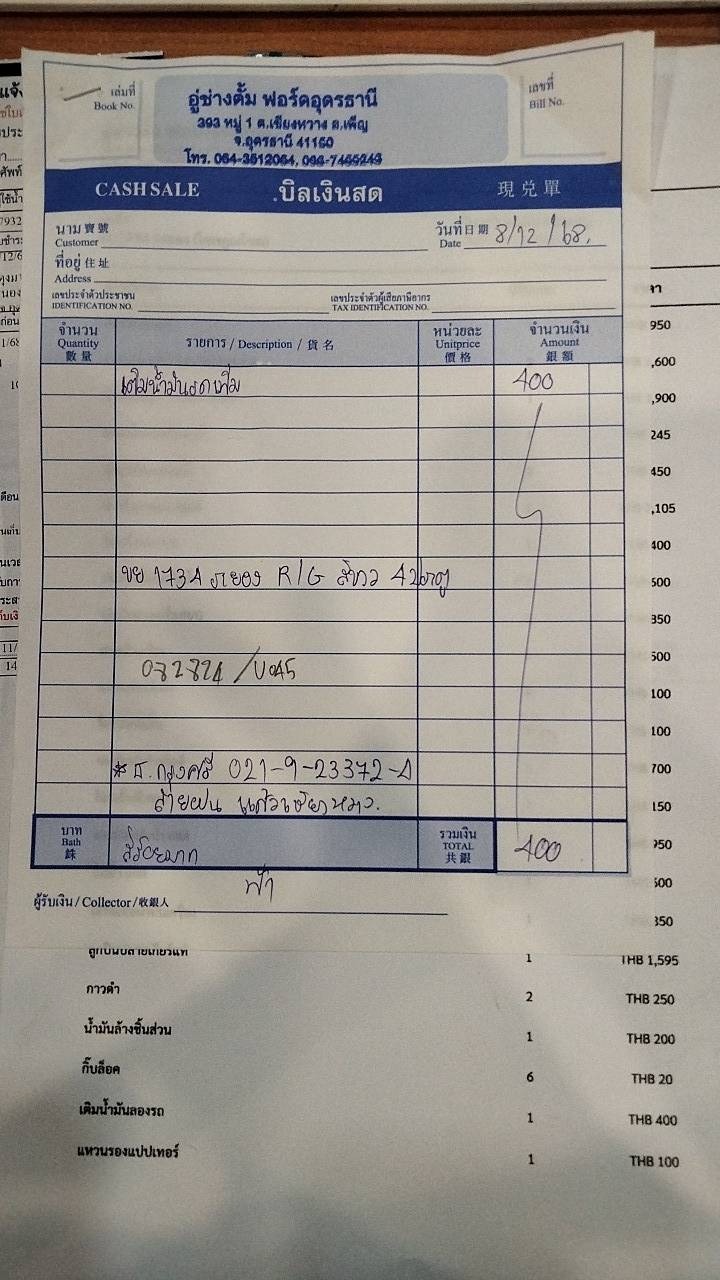 เล่มที่
Book No.
อู่ช่างตั้ม ฟอร์ดอุดรธานี
393 หมู่ 1 ต.เชียงหวาง อ.เพ็ญ
จ.อุดรธานี 41150
โทร.
เลขที่
Bill No.
CASH SALE บิลเงินสด 現兌單
นาม 寶號
Customer
วันที่ 日期
Date 8/12/68.
ที่อยู่ 住址
Address
เลขประจำตัวประชาชน
IDENTIFICATION NO.
เลขประจำตัวผู้เสียภาษีอากร
TAX IDENTIFICATION NO.
จำนวน
Quantity
數量
รายการ / Description / 貨名
หน่วยละ
Unitprice
價格
จำนวนเงิน
Amount
銀額
เติมน้ำมัน 400
1734 ระยอง R/G สีขาว 4ประตู
032824
* ธ.กรุงศรี 021-9-23372-
สายฝน
บาท
Bath
銖
สี่ร้อยบาท
รวมเงิน
TOTAL
共銀
400
ผู้รับเงิน / Collector / 收銀人 ฟ้า
950
,600
,900
245
450
,105
400
500
350
500
100
100
700
150
950
500
350
1 THB 1,595
กาวดำ 2 THB 250
น้ำมันล้างชิ้นส่วน 1 THB 200
กิ๊บล็อค 6 THB 20
เติมน้ำมันลองรถ 1 THB 400
แหวนรองแปปเทอร์ 1 THB 100